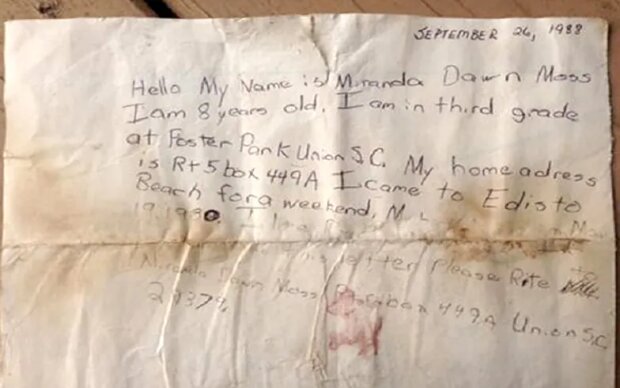 SEPTEMBER 26, 1988
Hello My Name is Miranda Dawn Moss
I am 8 years old. I am in third grade
at Foster Park Union S.C. My home adress
is Rt 5 box 449A I came to Edisto
Beach for a weekend, M
letter please Rite
Miranda Dawn Moss box 449A Union S.C.
29379.